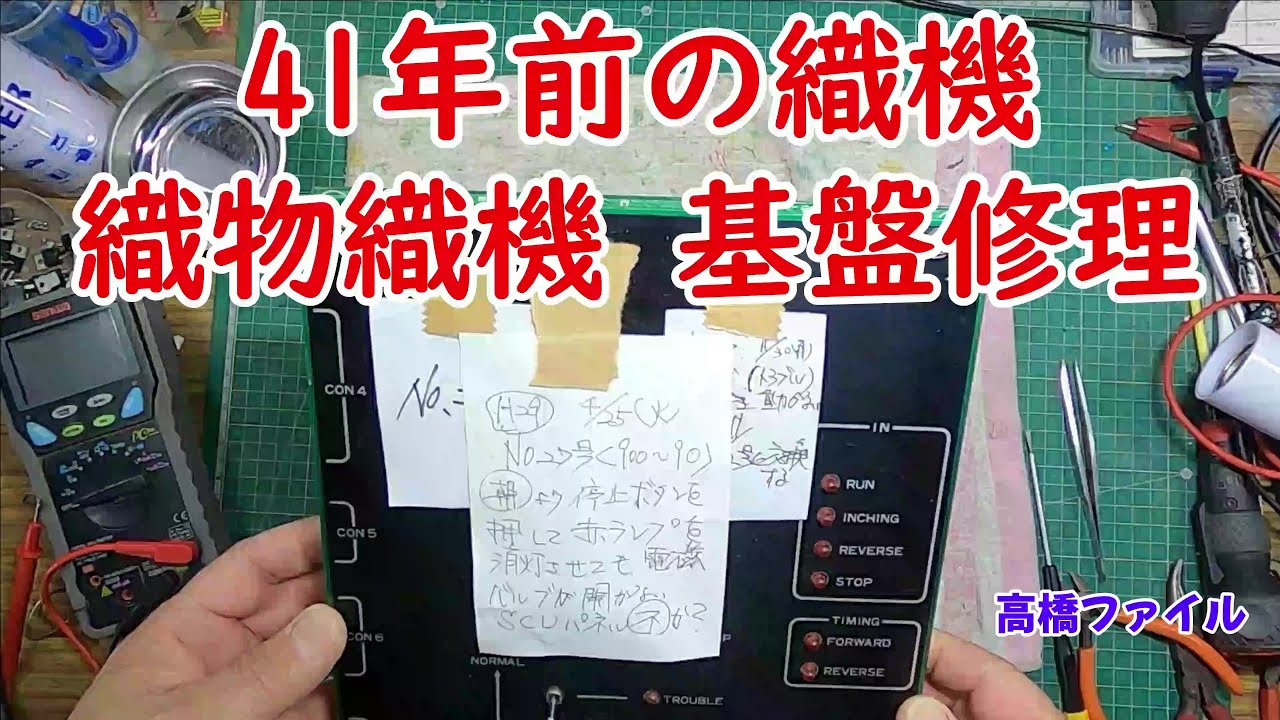 41年前の織機
織物織機 基盤修理
高橋ファイル
No.
H29 4/25(火
No.27号(900~90)
朝より停止ボタンを
押して赤ランプを
消灯させても電磁
バルブが開かない
SCUパネル不か?
11/30(月)
(トラブル)
CON 4
CON 5
CON 6
IN
RUN
INCHING
REVERSE
STOP
TIMING
FORWARD
REVERSE
NORMAL
TROUBLE